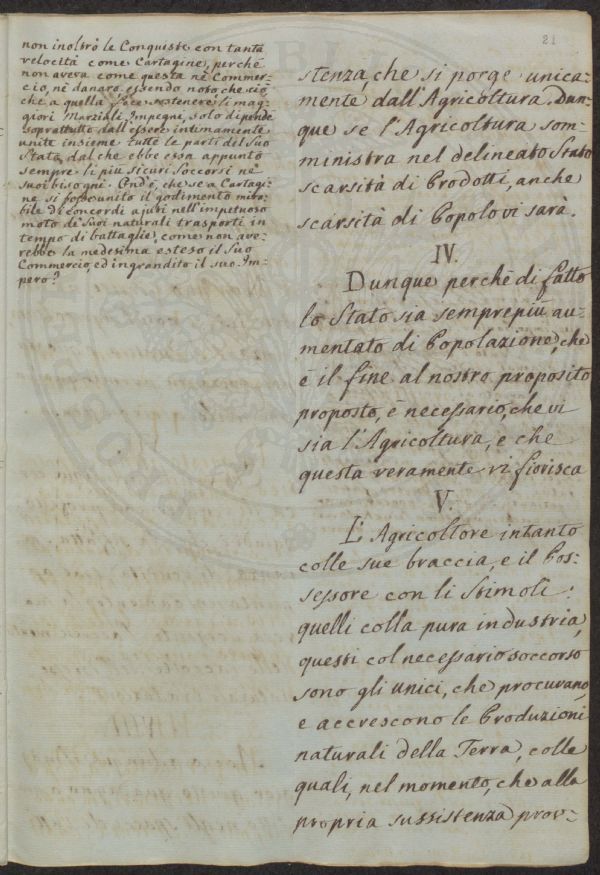 21
non inoltrò le Conquiste con tanta
velocità come Cartagine, perchè
non aveva come questa nè Commer-
cio, nè danaro essendo noto che ciò
che a quella face sostenere i mag-
giori Marziali Impegni, solo dipende
soprattutto dall'essere intimamente
unite insieme tutte le parti del suo
Stato, dal che ebbe essa appunto
sempre li più sicuri Soccorsi ne
suoi bisogni. Ond'è, che se a Cartagi-
ne si fosse unito il godimento mira-
bile di concordi ajuti nell'impetuoso
moto de' suoi naturali trasporti in
tempo di battaglie, come non ave-
rebbe la medesima esteso il suo
Commercio, ed ingrandito il suo Im-
pero?
stenza, che si porge unica-
mente dall'Agricoltura. Dun-
que se l'Agricoltura som-
ministra nel delineato Stato
scarsità di Prodotti, anche
scarsità di Popolo vi sarà.
IV.
Dunque perchè di fatto
lo Stato sia semprepiù au-
mentato di Popolazione, che
è il fine al nostro proposito
proposto, è necessario, che vi
sia l'Agricoltura, e che
questa veramente vi fiorisca
V.
L'Agricoltore intanto
colle sue braccia, e il Pos-
sessore con li Stimoli:
quelli colla pura industria,
questi col necessario soccorso
sono gli unici, che procurano,
e accrescono le Produzioni
naturali della Terra, colle
quali, nel momento, che alla
propria sussistenza prov-